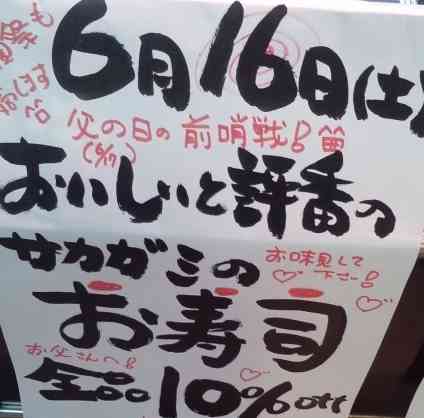 6月16日(土)
父の日の前哨戦!
(6/17)
おいしいと評番の
サカガミの
お味見して
下さい!
お寿司
お父さんへ!
全品10%off